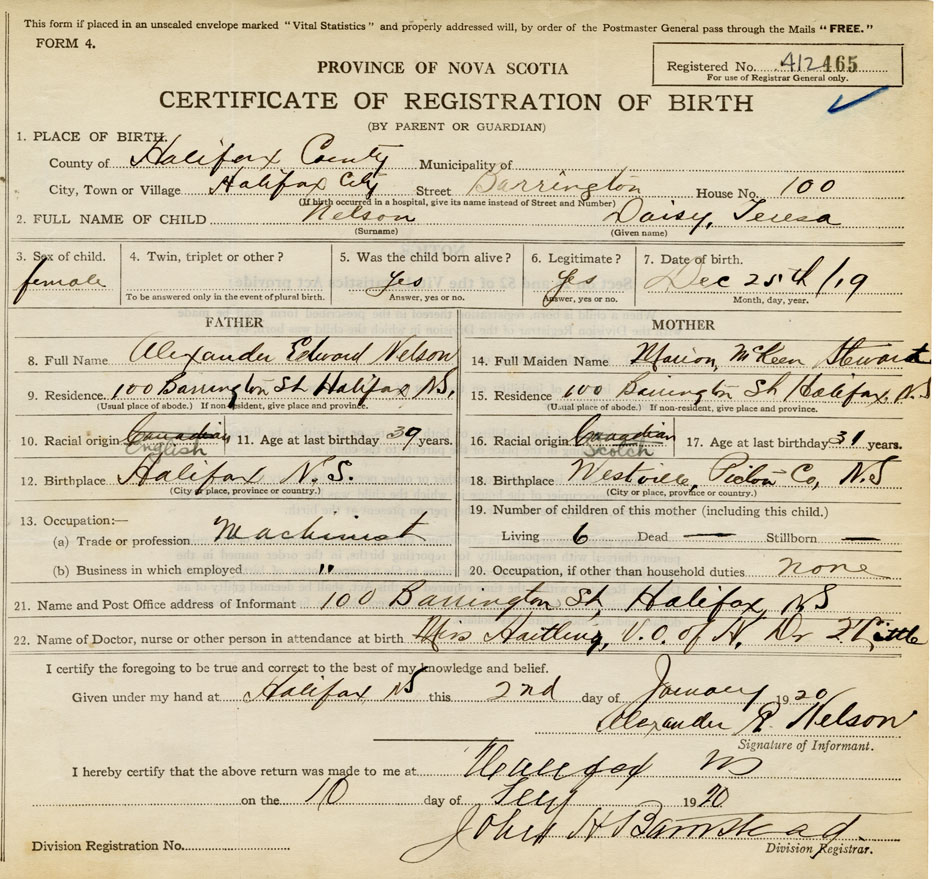 This form if placed in an unsealed envelope marked "Vital Statistics" and properly addressed will, by order of the Postmaster General pass through the Mails "FREE."
FORM 4.
Registered No. 412465
For use of Registrar General only.
PROVINCE OF NOVA SCOTIA
CERTIFICATE OF REGISTRATION OF BIRTH
(BY PARENT OR GUARDIAN)
1. PLACE OF BIRTH.
County of Halifax County Municipality of
City, Town or Village Halifax City Street Barrington House No. 100
(If birth occurred in a hospital, give its name instead of Street and Number)
2. FULL NAME OF CHILD Nelson Daisy, Teresa
(Surname) (Given name)
3. Sex of child. 4. Twin, triplet or other? 5. Was the child born alive? 6. Legitimate? 7. Date of birth.
female Yes Yes Dec 25th/19
To be answered only in the event of plural birth. Answer, yes or no. Answer, yes or no. Month, day, year.
FATHER MOTHER
8. Full Name Alexander Edward Nelson 14. Full Maiden Name Marion, McKeen Stewart
9. Residence 100 Barrington St Halifax N.S. 15. Residence 100 Barrington St Halifax. N.S
(Usual place of abode.) If non-resident, give place and province. (Usual place of abode.) If non-resident, give place and province.
10. Racial origin Canadian 11. Age at last birthday 39 years. 16. Racial origin Canadian 17. Age at last birthday 31 years.
English Scotch
12. Birthplace Halifax N.S. 18. Birthplace Westville, Pictou Co, N.S
(City or place, province or country.) (City or place, province or country.)
13. Occupation:— 19. Number of children of this mother (including this child.)
(a) Trade or profession Machinist Living 6 Dead — Stillborn —
(b) Business in which employed " 20. Occupation, if other than household duties none
21. Name and Post Office address of Informant 100 Barrington St, Halifax, NS
22. Name of Doctor, nurse or other person in attendance at birth Miss V.O. of N. Dr Little
I certify the foregoing to be true and correct to the best of my knowledge and belief.
Given under my hand at Halifax NS this 2nd day of January 1920
Alexander E. Nelson
Signature of Informant.
I hereby certify that the above return was made to me at Halifax NS
on the 10 day of 1920
John H Barnstead.
Division Registration No. Division Registrar.